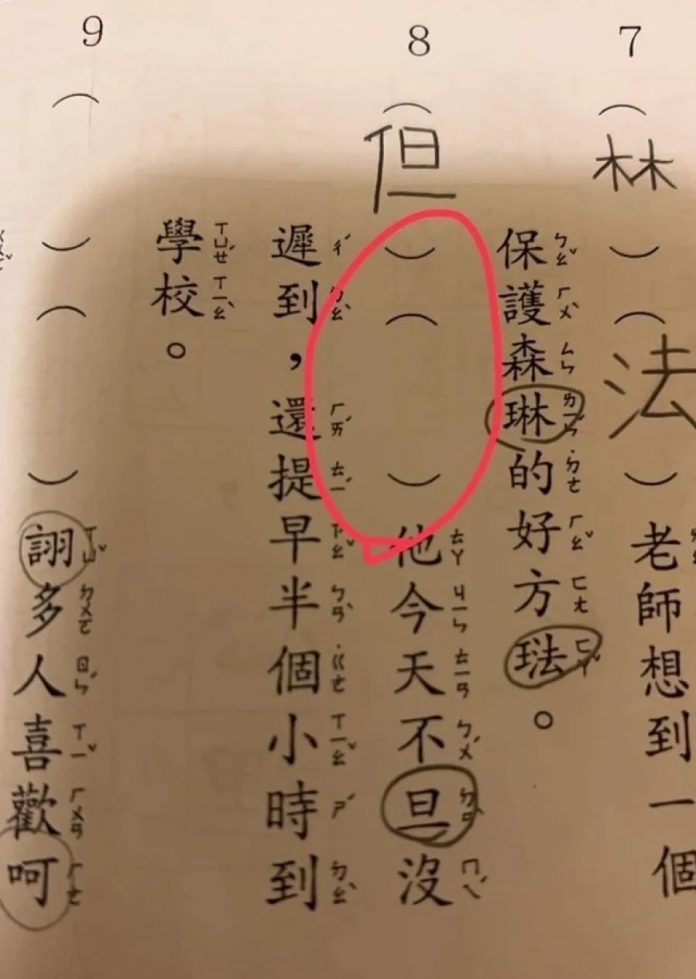 7（林）（法）老師想到一個
保護森琳的好方琺。
8（但）（　）他今天不旦沒
遲到，還提早半個小時到
學校。
9（　）（　）詡多人喜歡呵